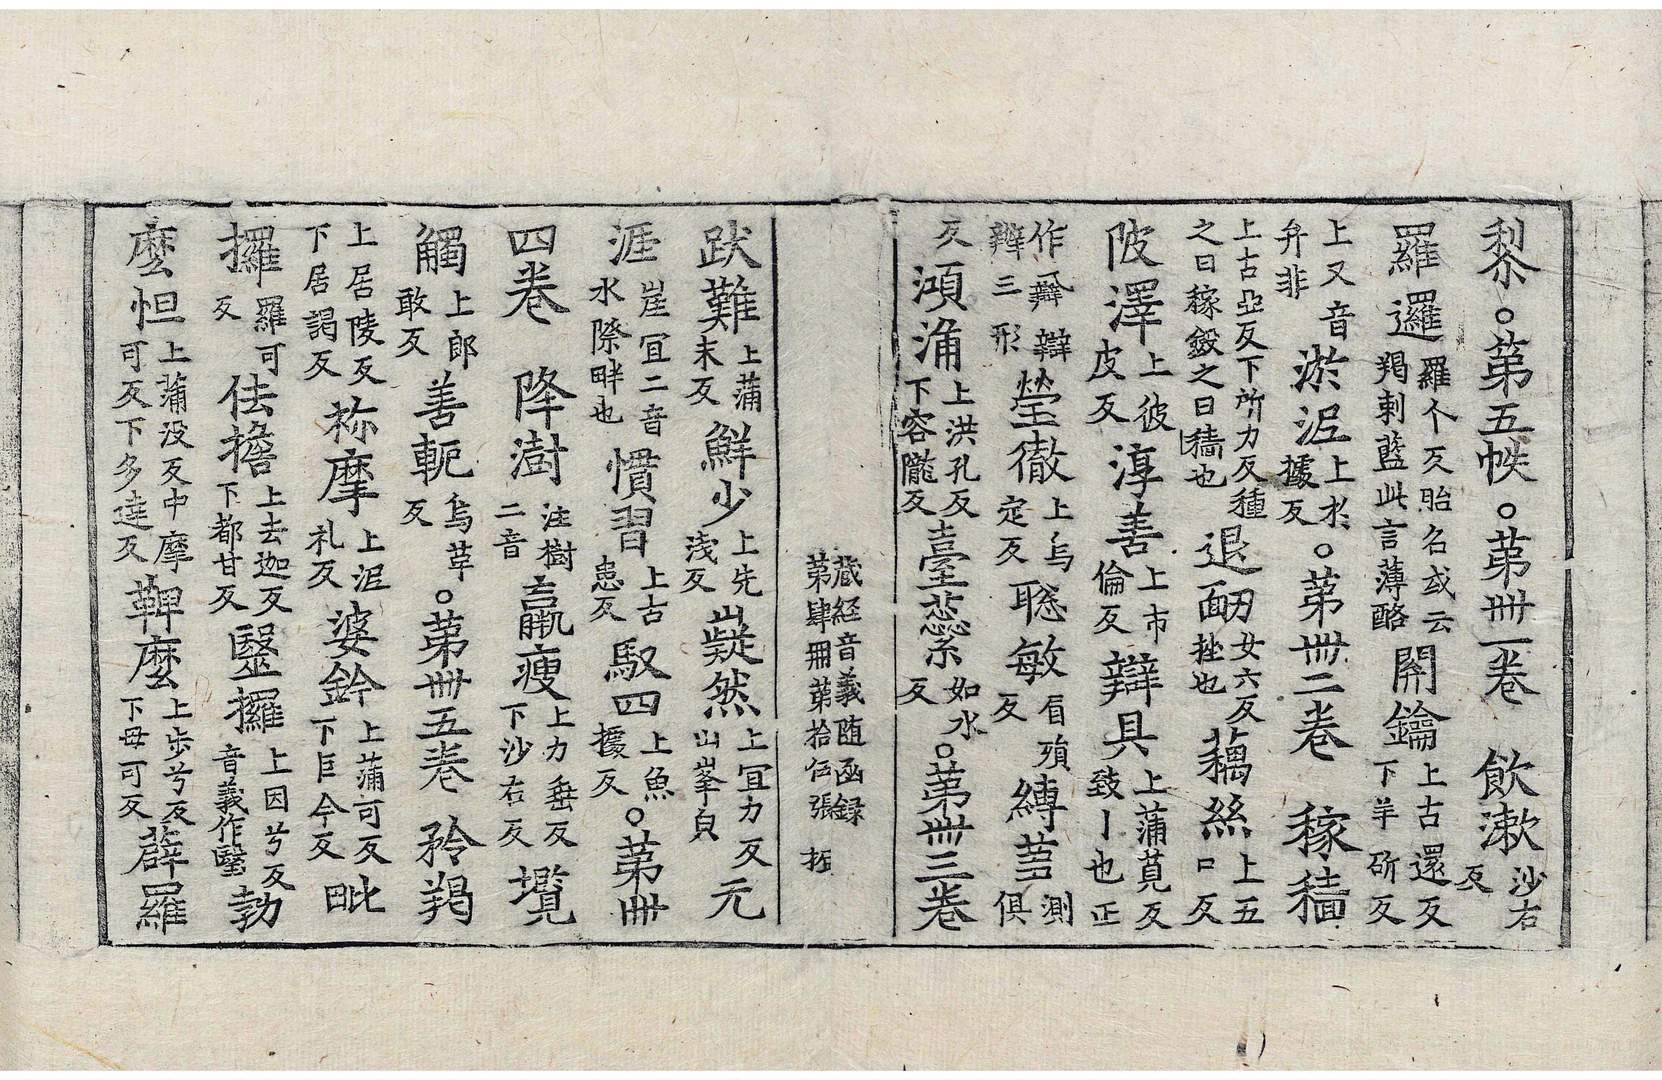 黎。第五帙。第卌一卷　飲漱沙右反
羅邏羅个反眙名或云羯剌藍此言薄酪開鑰上古還反下羊斫反
上又音弁非淤泥上於據反。第卌二卷　稼穡
上古亞反下所力反種之曰稼斂之曰穡也退衄女六反挫也藕絲上五口反
陂澤上彼皮反淳善上市倫反辯具上蒲莧反致丨也正
作辦辯辨三形瑩徹上烏定反聡敏眉殞反縛䓤測俱
反澒涌上洪孔反下容隴反臺蘂如水反。第卌三卷
藏經音義随函録第肆冊第拾伍張　拒
跋難上蒲末反鮮少上先淺反嶷然上宜力反山峯皃元
涯崖宜二音水際畔也慣習上古患反馭四上魚據反。第卌
四卷　降澍注樹二音羸瘦上力垂反下沙右反壞
觸上郎敢反善軛烏革反。第卌五卷　矜羯
上居陵反下居謁反祢摩上泥礼反婆鈐上蒲可反下巨今反毗
攞羅可反佉擔上去迦反下都甘反醫攞上因兮反音義作瞖勃
麼怛上蒲没反中摩可反下多達反鞞麼上步兮反下母可反薜羅